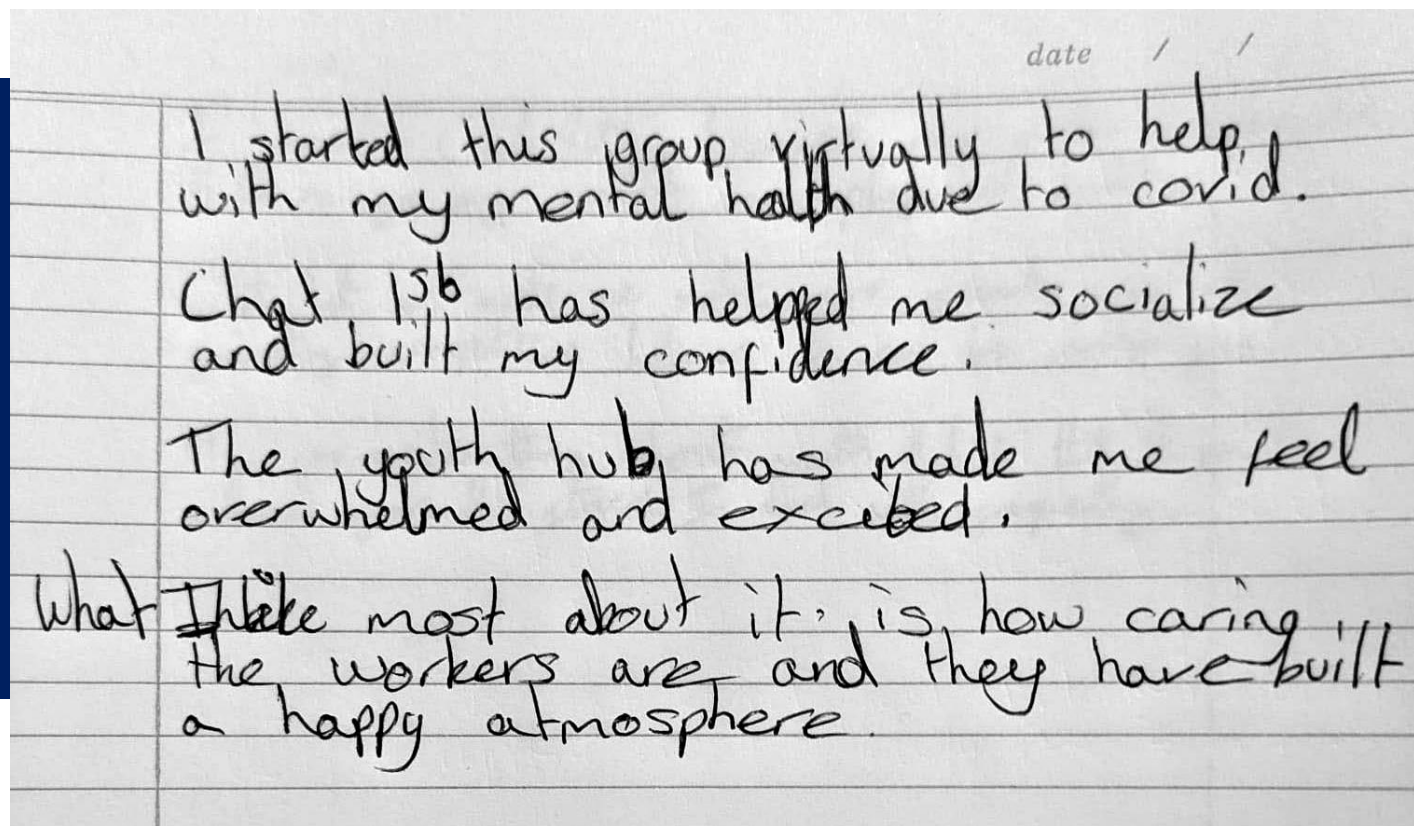 date / /
I started this group virtually to help
with my mental health due to covid.
Chat 1st has helped me socialize
and built my confidence.
The youth hub has made me feel
overwhelmed and excited.
What I like most about it, is how caring
the workers are and they have built
a happy atmosphere.